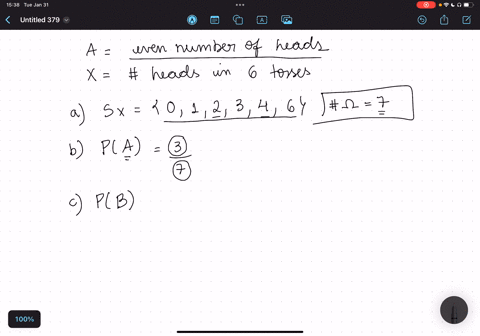 15:38 Tue Jan 31
Untitled 379
A = even number of heads
X = # heads in 6 tosses
a) Sx = { 0, 1, 2, 3, 4, 6 } #Ω = 7
b) P(A) = 3/7
c) P(B)
100%